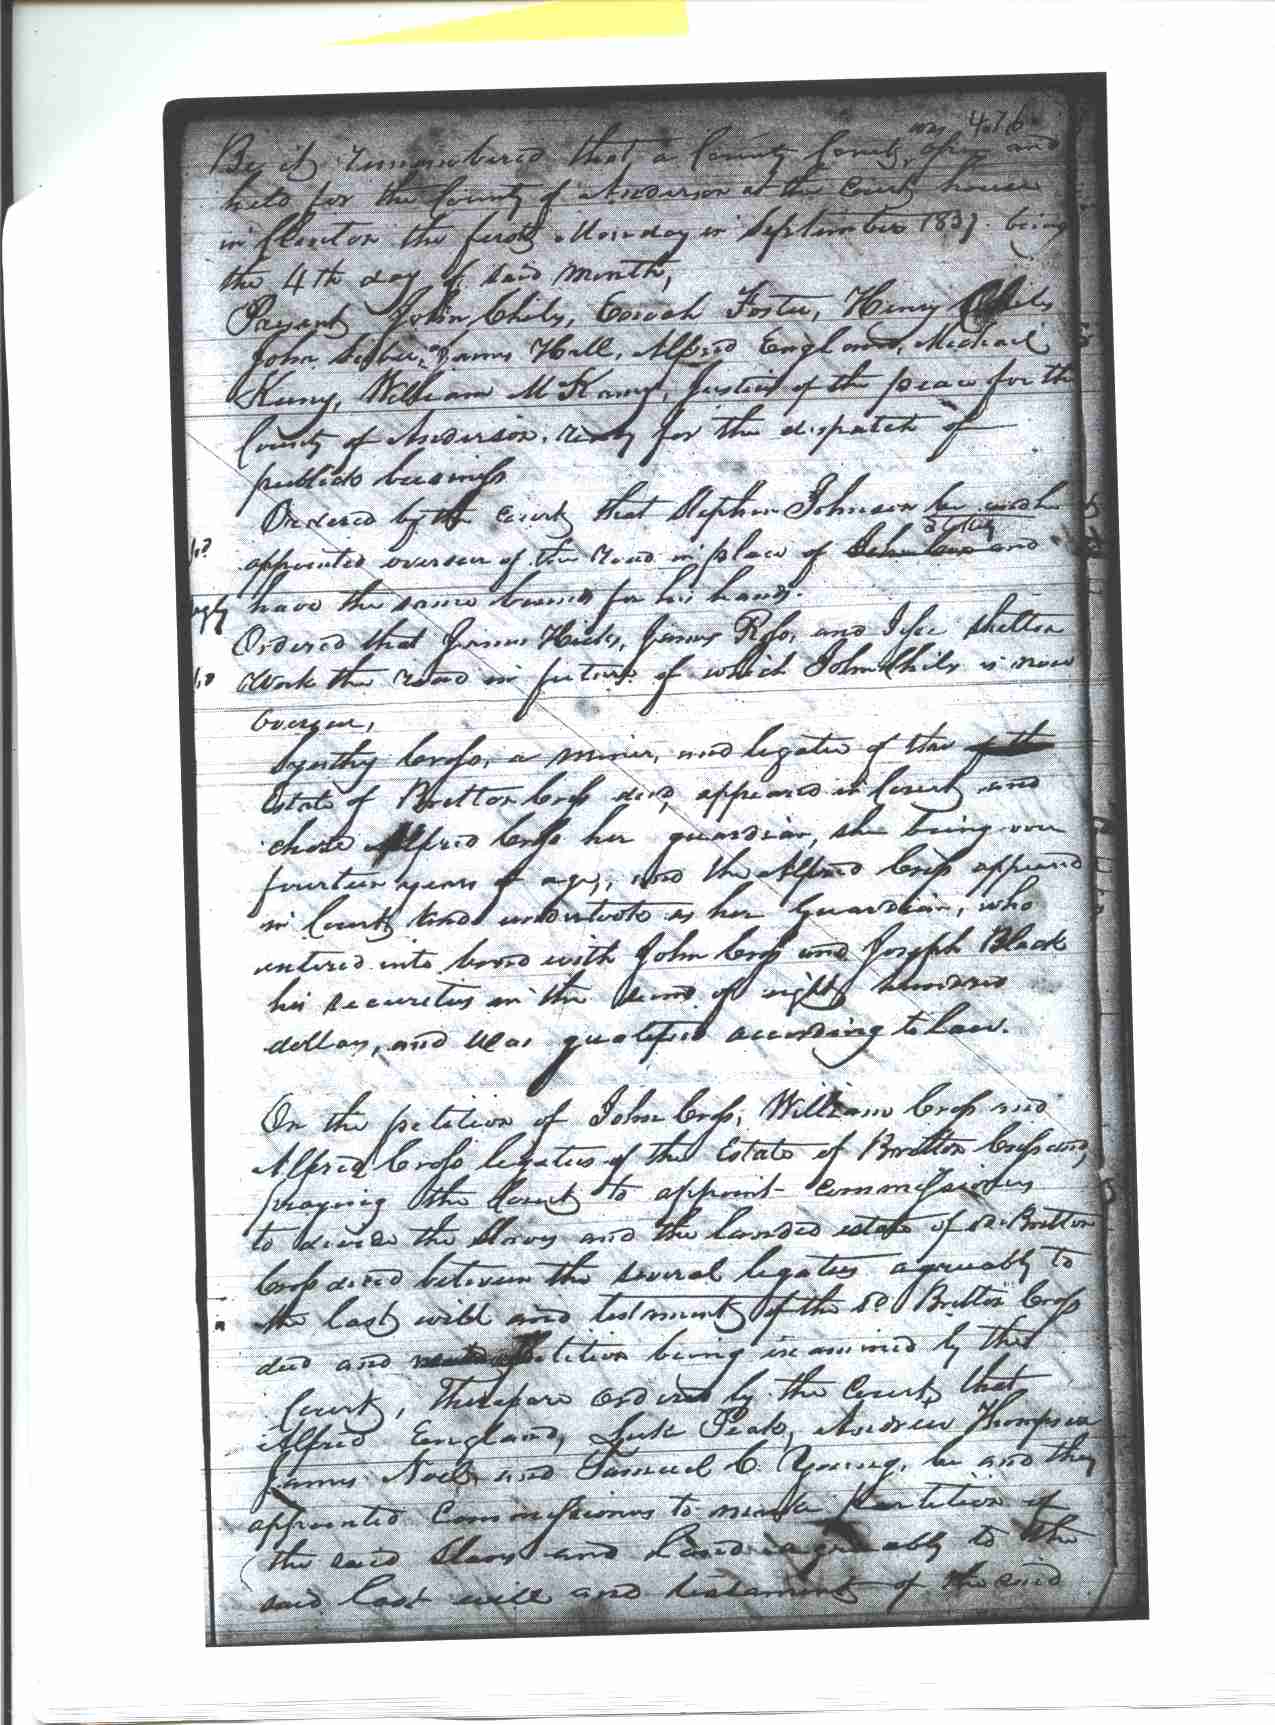 476
was
Be it remembered that a County Court, open and
held for the County of Anderson at the Court house
in Clinton the first Monday in September 1837 being
the 4th day of said month,
Present John Chils, Foster, Henry Chils
John James Hall, Alfred England, Michael
William McKamy, Justices of the peace for the
County of Anderson, for the dispatch of
publick business
Ordered by the Court that Stephen Johnson be and he
appointed overseer of the road in place of and
have the same bounds for his hands.
Ordered that James Hicks, James Ross, and Shelton
Work the road in future of which John Chils is now
Overseer,
Cross, a minor, and legatee of the of the
Estate of Britton Cross decd, appeared in Court and
chose Alfred Cross her guardian, she being over
fourteen years of age, and the Alfred Cross appeared
in Court and undertook as her Guardian, who
entered into bond with John Cross and Joseph Black
his securities in the sum of eight hundred
dollars, and was qualified according to Law.
On the petition of John Cross, William Cross and
Alfred Cross legatees of the Estate of Britton Cross
praying the Court to appoint commissioners
to divide the Slaves and the landed estate of sd. Britton
Cross decd between the several legatees agreeably to
the last will and testment of the sd. Britton Cross
decd and petition being examined by the
Court, Therefore ordered by the Court, that
Alfred England, Luke Peak, Andrew Thompson
James Noel, and Samuel C. Young, be and they
appointed Commissioners to make partition of
the said Slaves and Land agreeably to the
said last will and testament of the said